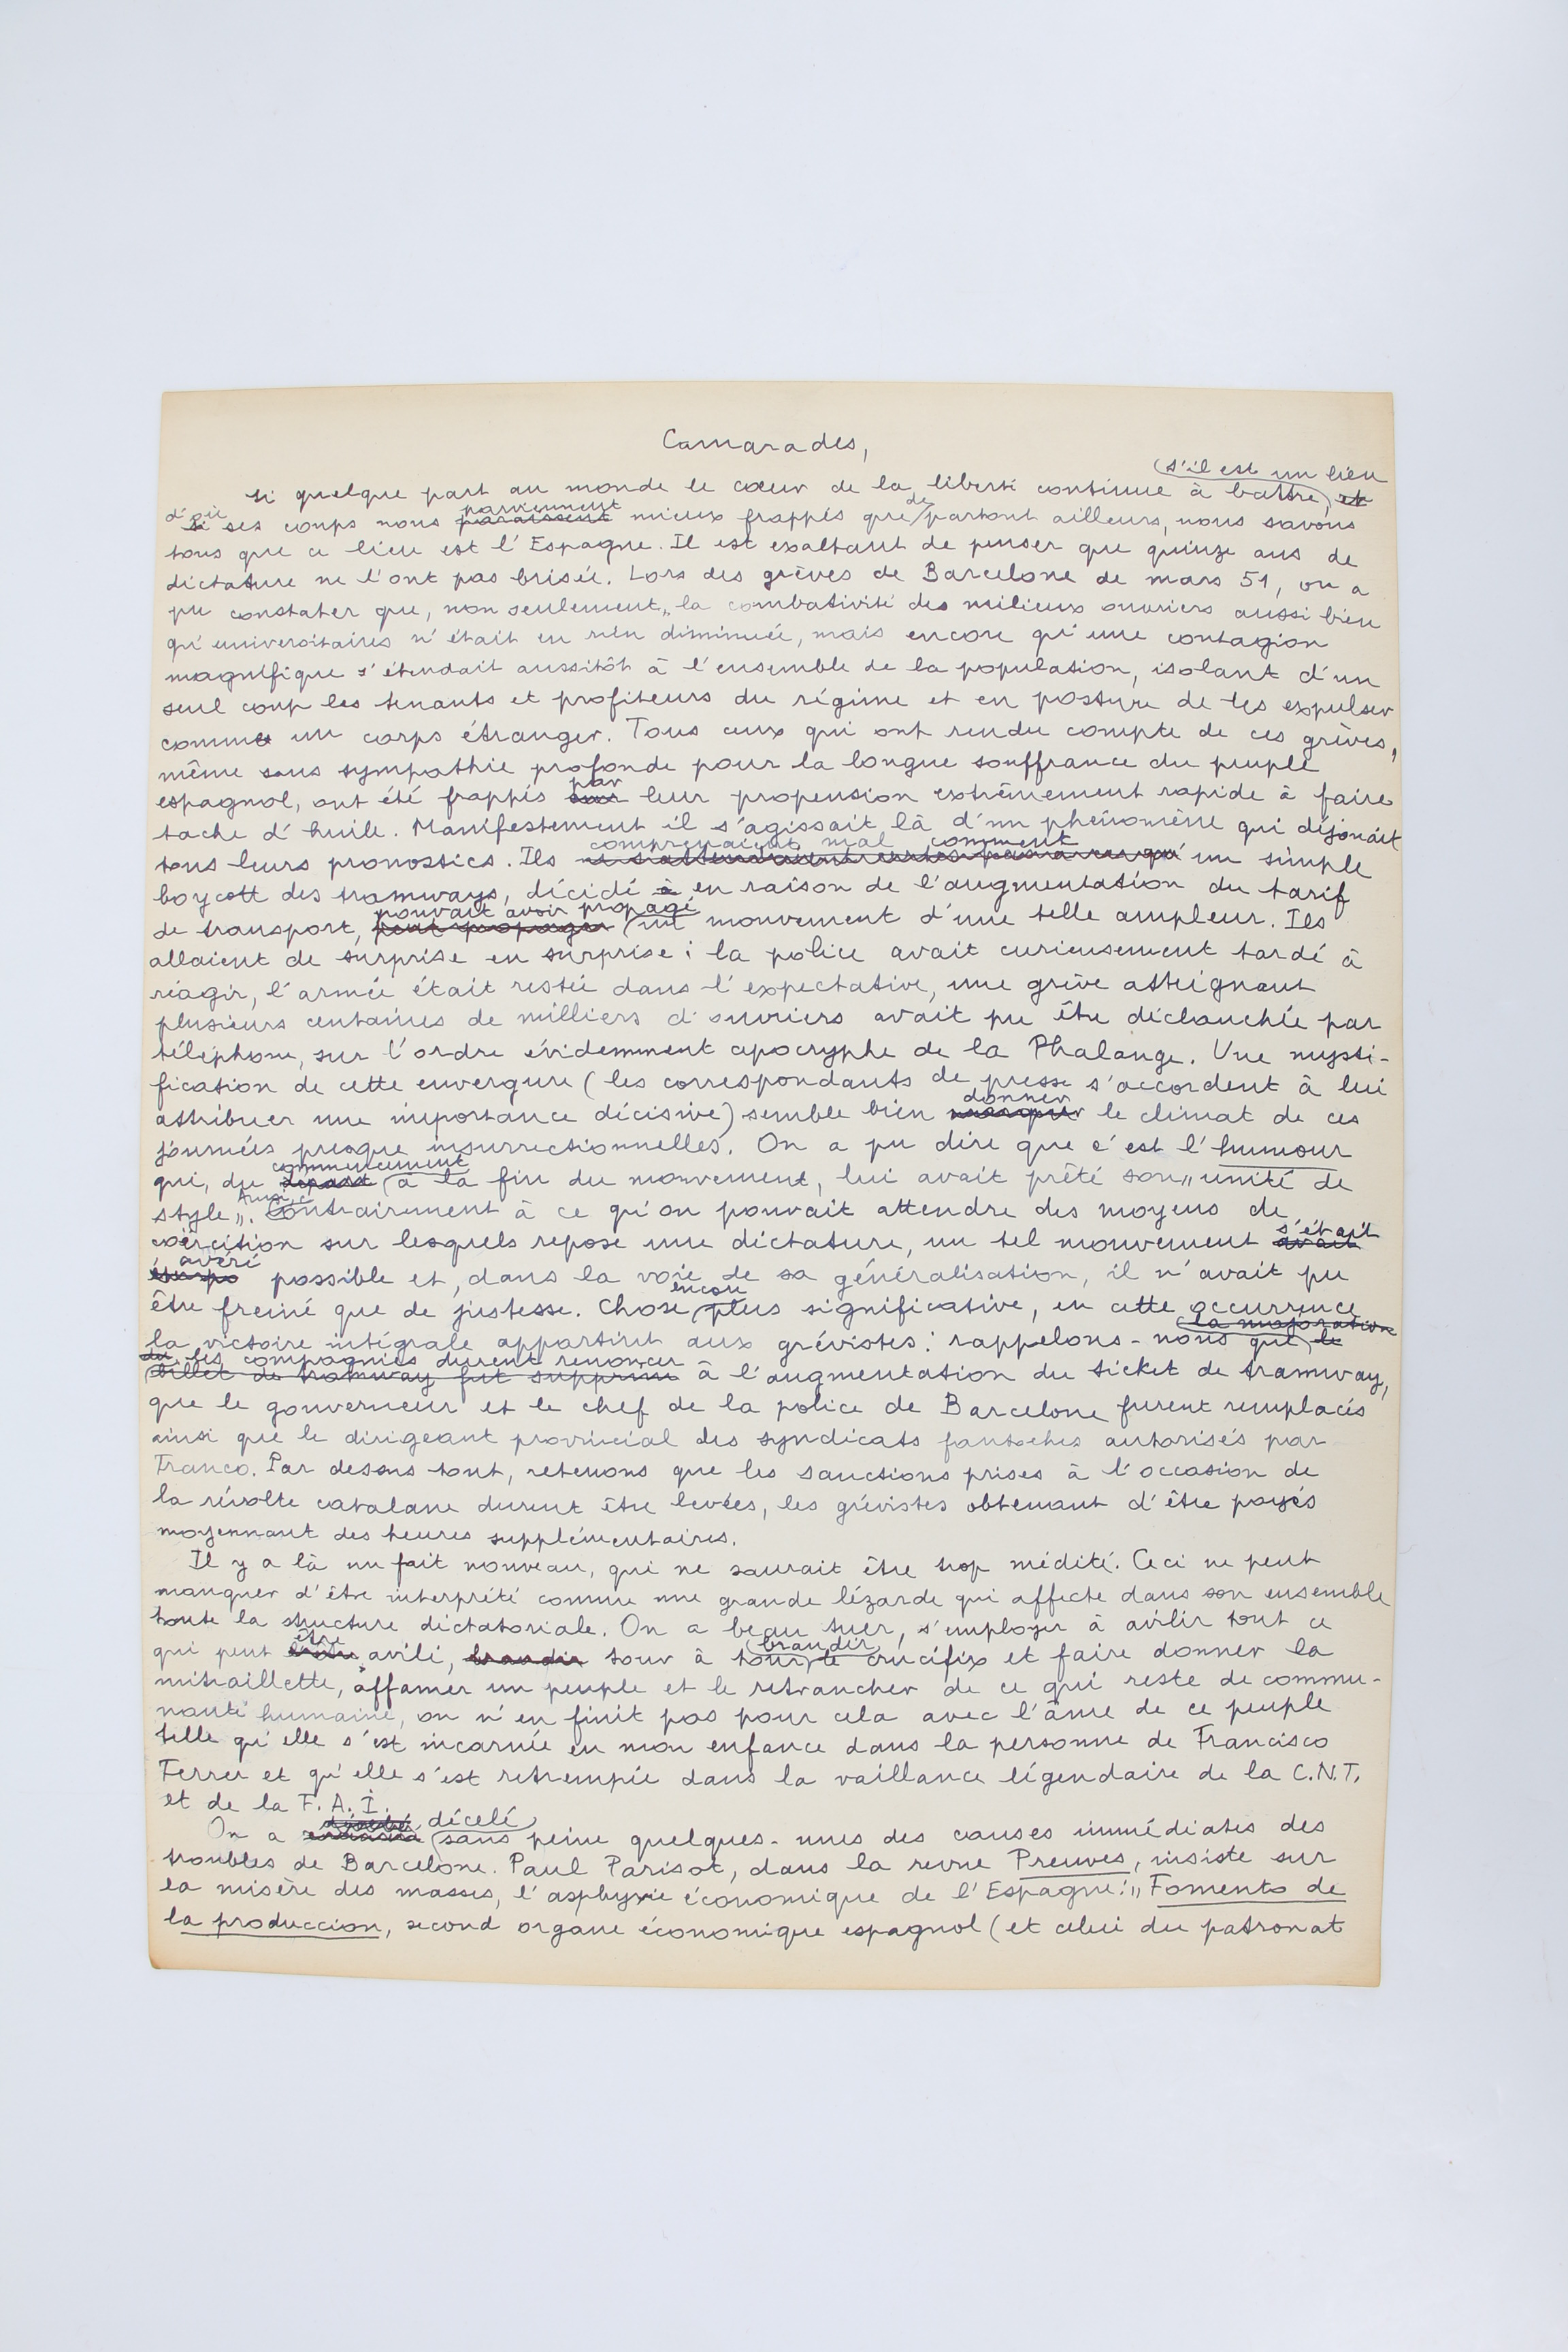 Camarades,
(s'il est un lieu
si quelque part au monde le cœur de la liberté continue à battre, et
d'où parviennent de
si ses coups nous paraissent mieux frappés que partout ailleurs, nous savons
tous que ce lieu est l'Espagne. Il est exaltant de penser que quinze ans de
dictature ne l'ont pas brisée. Lors des grèves de Barcelone de mars 51, on a
pu constater que, non seulement, la combativité des milieux ouvriers aussi bien
qu'universitaires n'était en rien diminuée, mais encore qu'une contagion
magnifique s'étendait aussitôt à l'ensemble de la population, isolant d'un
seul coup les tenants et profiteurs du régime et en posture de les expulser
comme un corps étranger. Tous ceux qui ont rendu compte de ces grèves,
même sans sympathie profonde pour la longue souffrance du peuple
par
espagnol, ont été frappés sur leur propension extrêmement rapide à faire
tache d'huile. Manifestement il s'agissait là d'un phénomène qui déjouait
comprenaient mal comment
tous leurs pronostics. Ils ne s'attendaient certes pas à ce qu'un simple
boycott des tramways, décidé à en raison de l'augmentation du tarif
pouvait avoir propagé
de transport, peut propager un mouvement d'une telle ampleur. Ils
allaient de surprise en surprise : la police avait curieusement tardé à
réagir, l'armée était restée dans l'expectative, une grève atteignant
plusieurs centaines de milliers d'ouvriers avait pu être déclanchée par
téléphone, sur l'ordre évidemment apocryphe de la Phalange. Une mysti-
fication de cette envergure (les correspondants de presse s'accordent à lui
donner
attribuer une importance décisive) semble bien marquer le climat de ces
journées presque insurrectionnelles. On a pu dire que c'est l'humour
commencement
qui, du départ à la fin du mouvement, lui avait prêté son „unité de
Ainsi, c
style„. Contrairement à ce qu'on pouvait attendre des moyens de
s'était
coërcition sur lesquels repose une dictature, un tel mouvement avait
avéré
été possible et, dans la voie de sa généralisation, il n'avait pu
encore
être freiné que de justesse. Chose plus significative, en cette occurrence
la majoration
la victoire intégrale appartint aux grévistes : rappelons-nous que le
du les compagnies durent renoncer
billet de tramway fut supprimé à l'augmentation du ticket de tramway,
que le gouverneur et le chef de la police de Barcelone furent remplacés
ainsi que le dirigeant provincial des syndicats fantoches autorisés par
Franco. Par dessus tout, retenons que les sanctions prises à l'occasion de
la révolte catalane durent être levées, les grévistes obtenant d'être payés
moyennant des heures supplémentaires.
Il y a là un fait nouveau, qui ne saurait être trop médité. Ceci ne peut
manquer d'être interprété comme une grande lézarde qui affecte dans son ensemble
toute la structure dictatoriale. On a beau tuer, s'employer à avilir tout ce
être brandir
qui peut avili, brandir tour à tour le crucifix et faire donner la
mitraillette, affamer un peuple et le retrancher de ce qui reste de commu-
nauté humaine, on n'en finit pas pour cela avec l'âme de ce peuple
telle qu'elle s'est incarnée en mon enfance dans la personne de Francisco
Ferrer et qu'elle s'est retrempée dans la vaillance légendaire de la C.N.T.
et de la F.A.I.
décelé
On a sans peine quelques-unes des causes immédiates des
troubles de Barcelone. Paul Parisot, dans la revue Preuves, insiste sur
la misère des masses, l'asphyxie économique de l'Espagne : „Fomento de
la produccion, second organe économique espagnol (et celui du patronat